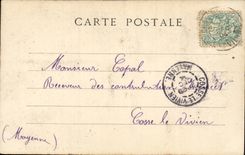 CARTE POSTALE
COSSÉ-LE-VIVIEN
MAYENNE
Monsieur Copal
Receveur des contributions
Cosse le Vivien
(Mayenne)